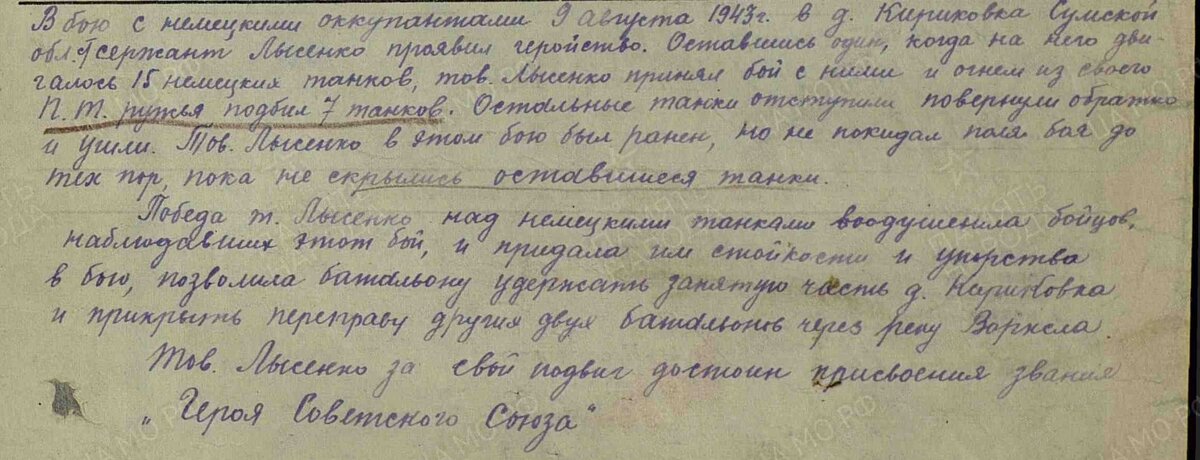 В бою с немецкими оккупантами 9 августа 1943г. в д. Кириковка Сумской
обл. сержант Лысенко проявил геройство. Оставшись один, когда на него дви-
галось 15 немецких танков, тов. Лысенко принял бой с ними и огнем из своего
П.Т. ружья подбил 7 танков. Остальные танки отступили повернули обратно
и ушли. Тов. Лысенко в этом бою был ранен, но не покидал поля боя до
тех пор, пока не скрылись оставшиеся танки.
Победа т. Лысенко над немецкими танками воодушевила бойцов,
наблюдавших этот бой, и придала им стойкости и упорства
в бою, позволила батальону удержать занятую часть д. Кириковка
и прикрыть переправу другия двух батальонов через реку Ворксла.
Тов. Лысенко за свой подвиг достоин присвоения звания
„Героя Советского Союза"